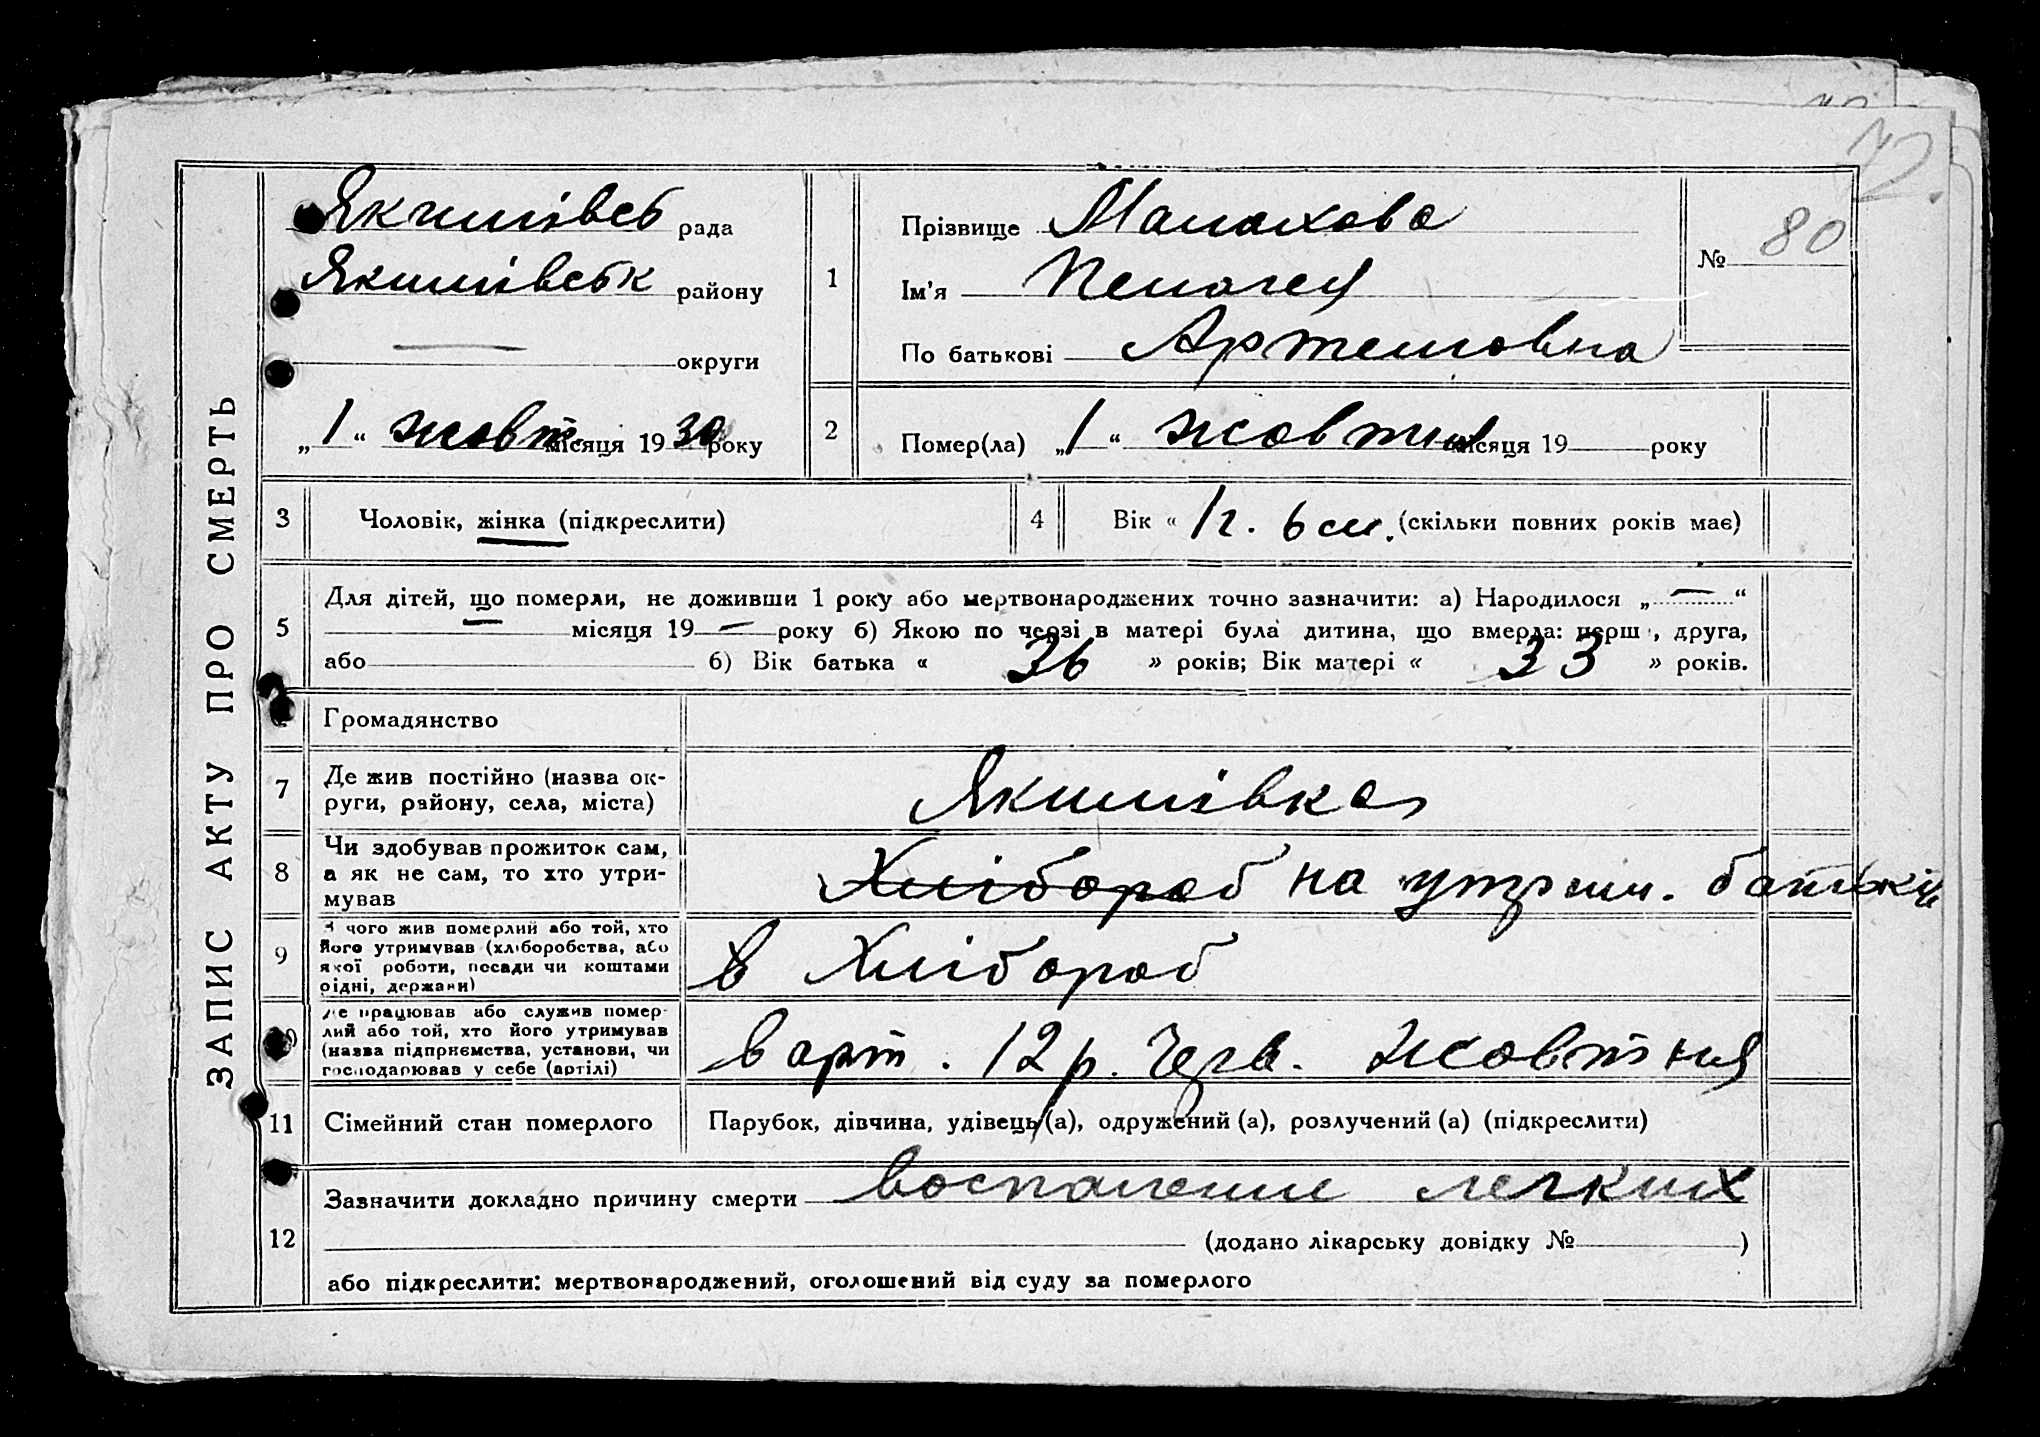 72.
ЗАПИС АКТУ ПРО СМЕРТЬ
Якимівсб рада
Якимівськ району
округи
„1“ жовт. місяця 1930 року
1
Прізвище Малахова
Ім'я Пелагея
По батькові Артемовна
№ 80
2
Помер(ла) „1“ жовтня місяця 19 року
3 Чоловік, жінка (підкреслити)
4 Вік « 1 г. 6 м. (скільки повних років має)
5
Для дітей, що померли, не доживши 1 року або мертвонароджених точно зазначити: а) Народилося „—“
місяця 19 — року б) Якою по черзі в матері була дитина, що вмерла: перш, друга,
або б) Вік батька « 36 » років; Вік матері « 33 » років.
Громадянство
7
Де жив постійно (назва ок-
руги, району, села, міста)
Якимівка
8
Чи здобував прожиток сам,
а як не сам, то хто утри-
мував
Хлібороб на утрим. батьків
9
З чого жив померлий або той, хто
його утримував (хліборобства, або
якої роботи, посади чи коштами
рідні, держави)
Хлібороб
10
Де працював або служив помер-
лий або той, хто його утримував
(назва підприємства, установи, чи
господарював у себе (артілі)
в арт. 12 р. Черв. жовтня
11 Сімейний стан померлого
Парубок, дівчина, удівець (а), одружений (а), розлучений (а) (підкреслити)
12
Зазначити докладно причину смерти воспаление легких
(додано лікарську довідку № )
або підкреслити: мертвонароджений, оголошений від суду за померлого